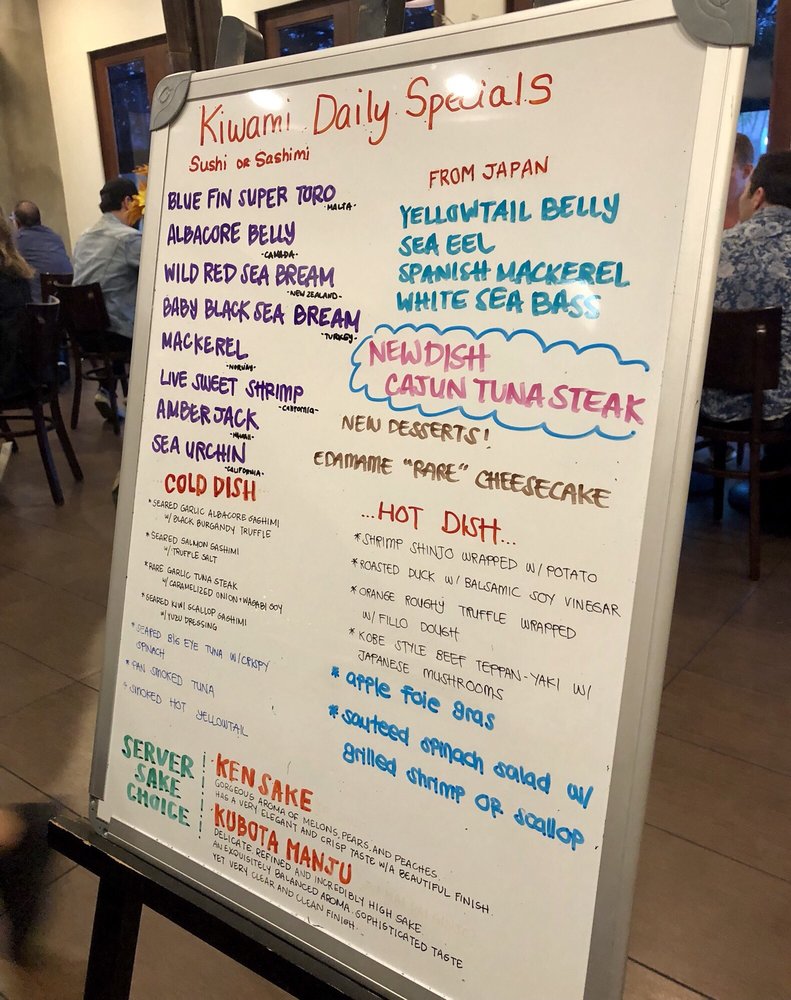 Kiwami Daily Specials
Sushi or Sashimi
BLUE FIN SUPER TORO
-MALTA-
ALBACORE BELLY
-CANADA-
WILD RED SEA BREAM
-NEW ZEALAND-
BABY BLACK SEA BREAM
-TURKEY-
MACKEREL
-NORWAY-
LIVE SWEET SHRIMP
-California-
AMBERJACK
-HAWAII-
SEA URCHIN
-CALIFORNIA-
FROM JAPAN
YELLOWTAIL BELLY
SEA EEL
SPANISH MACKEREL
WHITE SEA BASS
NEW DISH
CAJUN TUNA STEAK
NEW DESSERTS!
EDAMAME "RARE" CHEESECAKE
COLD DISH
*SEARED GARLIC ALBACORE SASHIMI
W/ BLACK BURGANDY TRUFFLE
*SEARED SALMON SASHIMI
W/ TRUFFLE SALT
*RARE GARLIC TUNA STEAK
W/ CARAMELIZED ONION + WASABI SOY
*SEARED KIWI SCALLOP SASHIMI
W/ YUZU DRESSING
*SEARED BIG EYE TUNA W/ CRISPY
SPINACH
*PAN SMOKED TUNA
*SMOKED HOT YELLOWTAIL
...HOT DISH...
*SHRIMP SHINJO WRAPPED W/ POTATO
*ROASTED DUCK W/ BALSAMIC SOY VINEGAR
*ORANGE ROUGHY TRUFFLE WRAPPED
W/ FILLO DOUGH
*KOBE STYLE BEEF TEPPAN-YAKI W/
JAPANESE MUSHROOMS
*apple foie gras
*sauteed spinach salad w/
grilled shrimp OR scallop
SERVER
SAKE
CHOICE
KEN SAKE
GORGEOUS AROMA OF MELONS, PEARS, AND PEACHES.
HAS A VERY ELEGANT AND CRISP TASTE W/A BEAUTIFUL FINISH.
KUBOTA MANJU
DELICATE, REFINED AND INCREDIBLY HIGH SAKE
AN EXQUISITELY BALANCED AROMA. SOPHISTICATED TASTE
YET VERY CLEAR AND CLEAN FINISH.